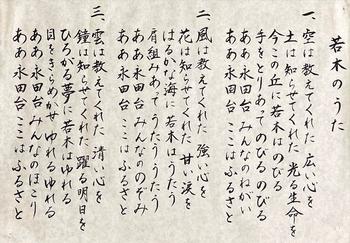 若木のうた
一、空は教えてくれた 広い心を
土は知らせてくれた 光る生命を
今この丘に若木はのびる
手をとりあって のびる のびる
ああ永田台 みんなのねがい
ああ永田台 ここはふるさと
二、風は教えてくれた 強い心を
花は知らせてくれた 甘い涙を
はるかな海に若木はうたう
肩組みあって うたう うたう
ああ永田台 みんなののぞみ
ああ永田台 ここはふるさと
三、雲は教えてくれた 清い心を
鐘は知らせてくれた 躍る明日を
ひろがる夢に 若木はゆれる
目をきらめかせ ゆれる ゆれる
ああ永田台 みんなのほこり
ああ永田台 ここはふるさと